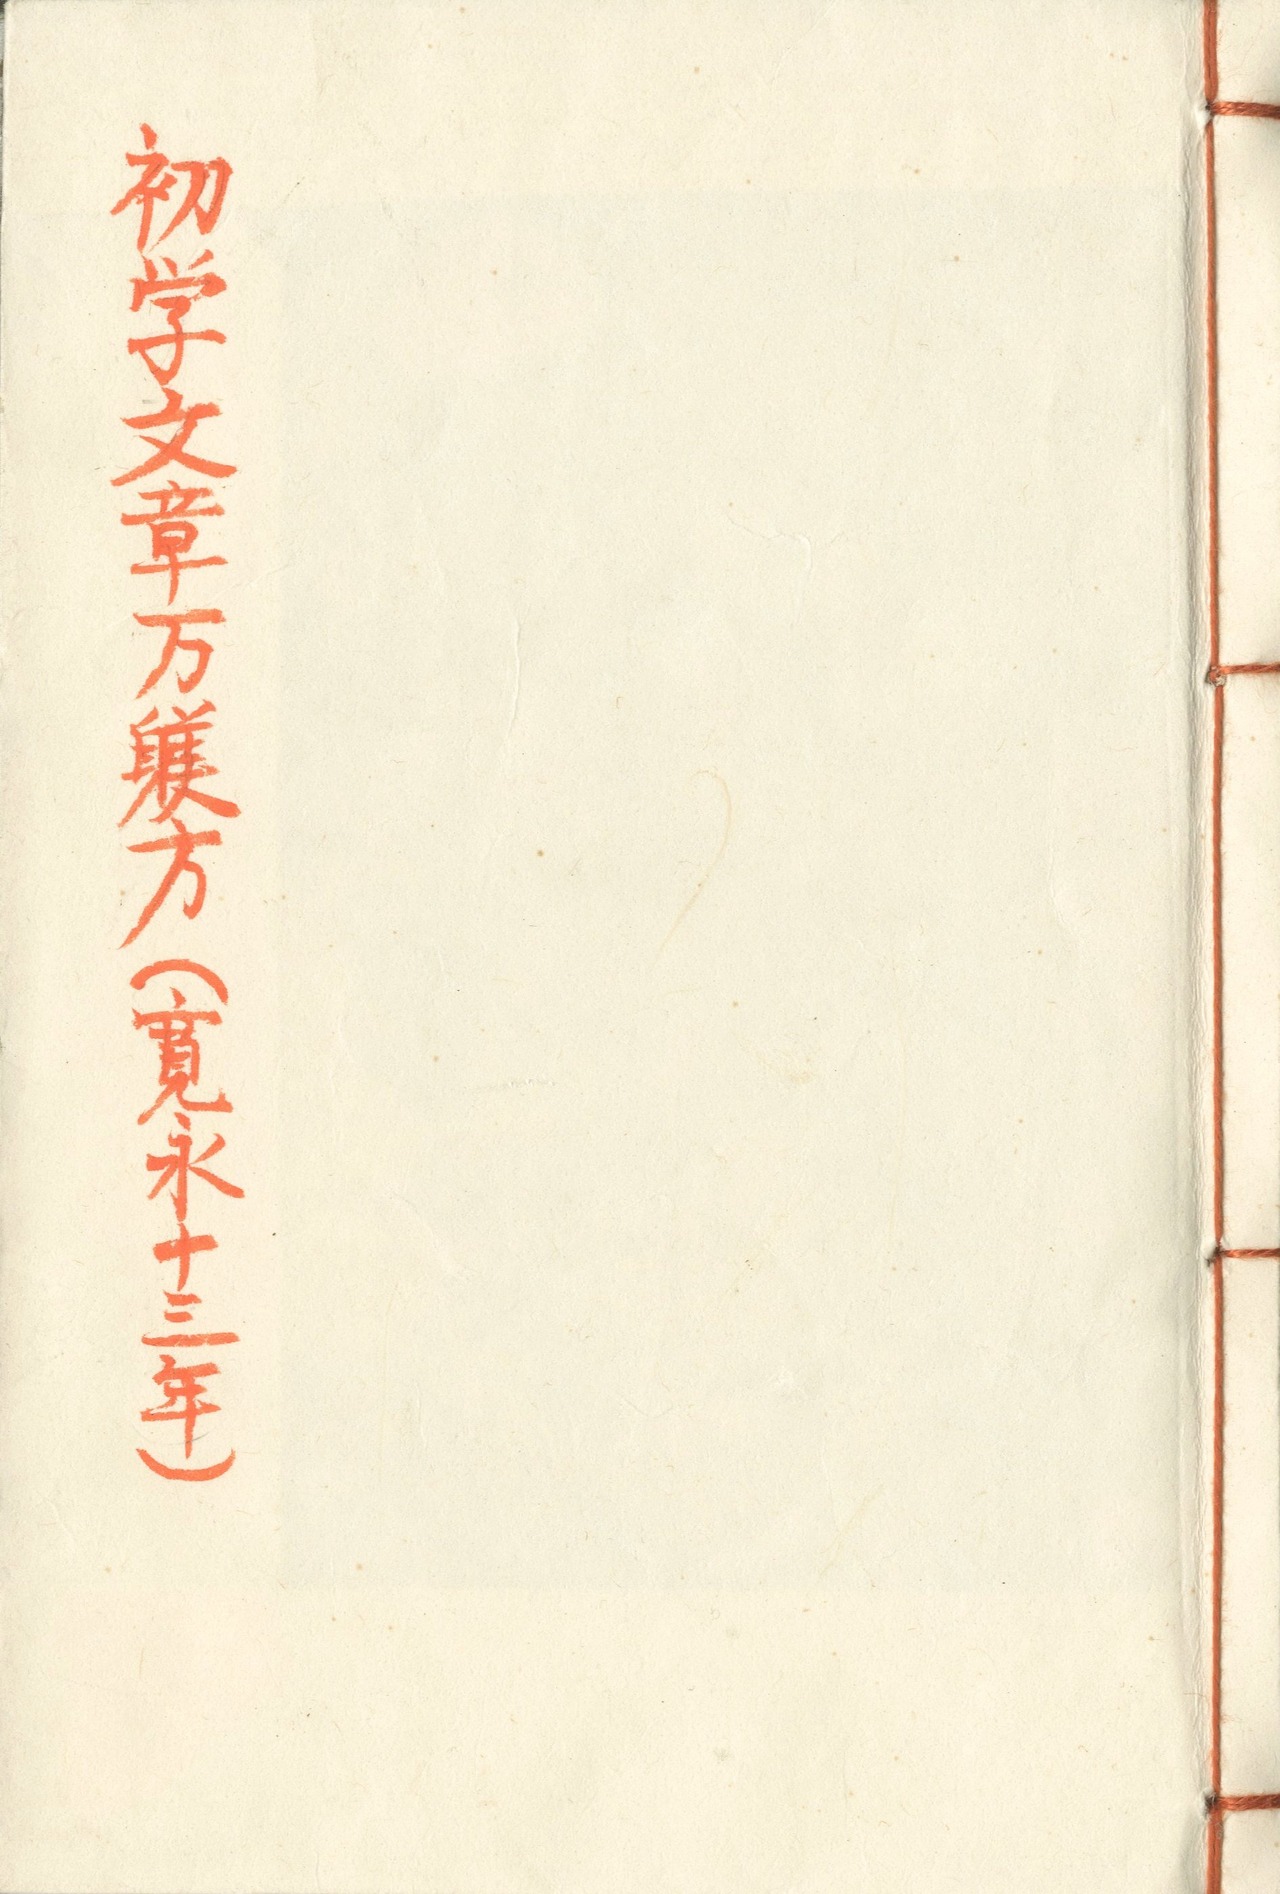 初学文章万躾方(寛永十三年)